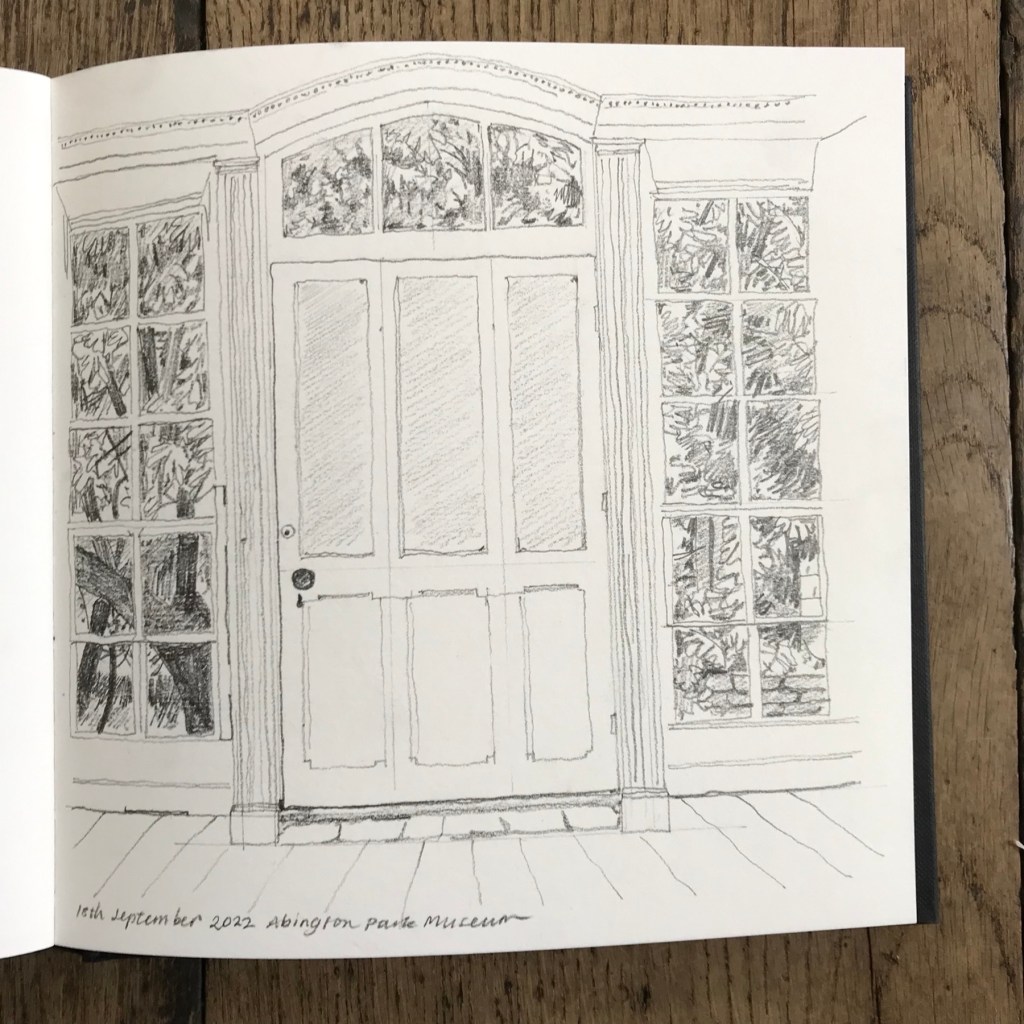 18th September 2022 Abington Park Museum